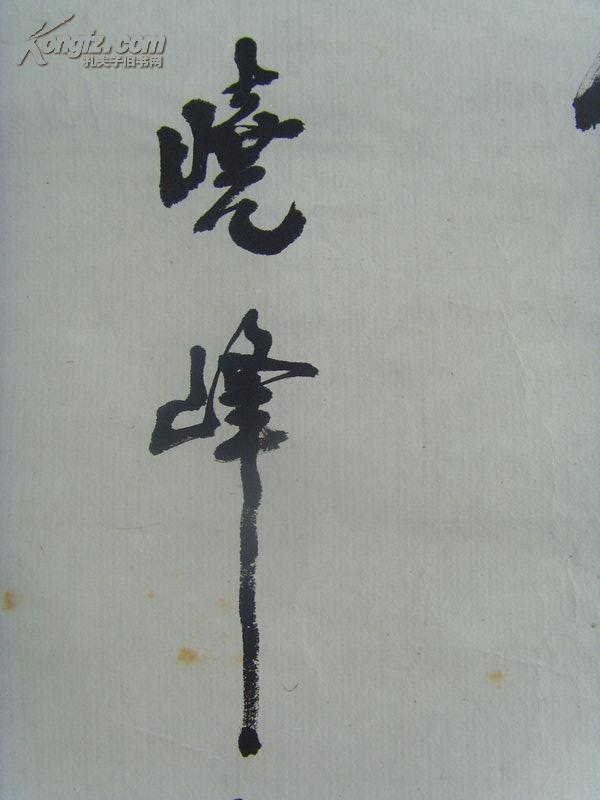 Kongfz.com
孔夫子旧书网
曉峰